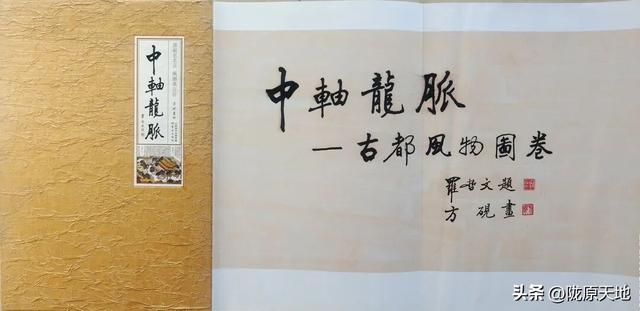 中軸龍脈
中軸龍脈
—古都風物圖卷
羅哲文題
方硯畫
头条 @陇原天地